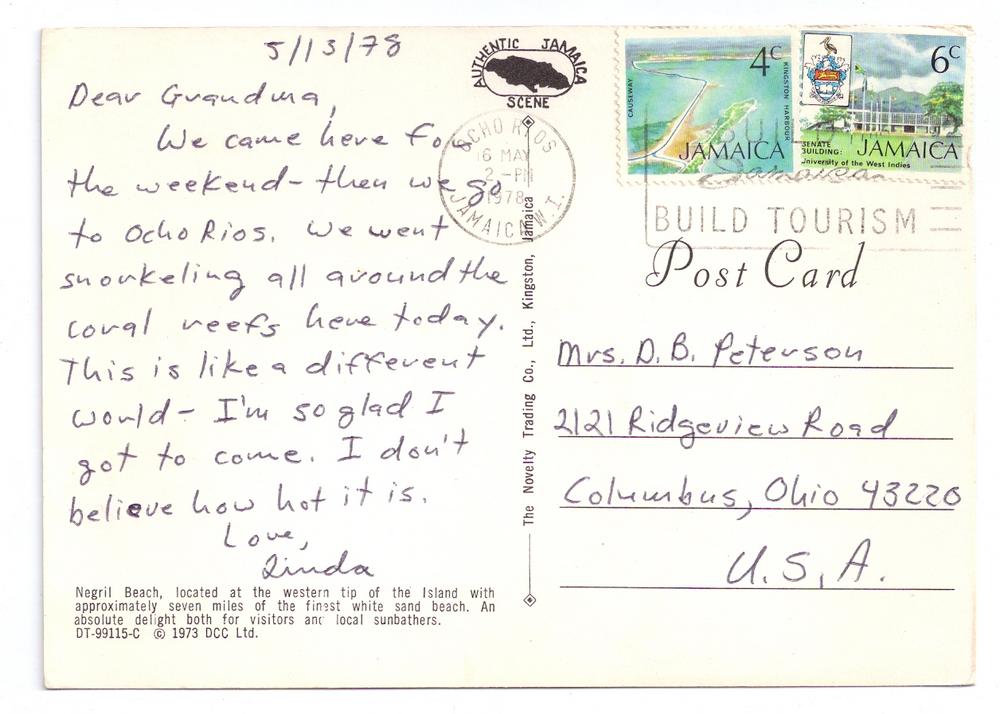 5/13/78
Dear Grandma,
We came here for
the weekend - then we go
to Ocho Rios. We went
snorkeling all around the
coral reefs here today.
This is like a different
world - I'm so glad I
got to come. I don't
believe how hot it is.
Love,
Linda
Negril Beach, located at the western tip of the Island with
approximately seven miles of the finest white sand beach. An
absolute delight both for visitors and local sunbathers.
DT-99115-C © 1973 DCC Ltd.
AUTHENTIC JAMAICA
SCENE
OCHO RIOS
16 MAY
2 - PM
1978
JAMAICA W.I.
The Novelty Trading Co., Ltd., Kingston, Jamaica
CAUSEWAY
4c
KINGSTON HARBOUR
JAMAICA
6c
SENATE
BUILDING:
JAMAICA
University of the West Indies
Jamaican
BUILD TOURISM
Post Card
Mrs. D. B. Peterson
2121 Ridgeview Road
Columbus, Ohio 43220
U.S.A.